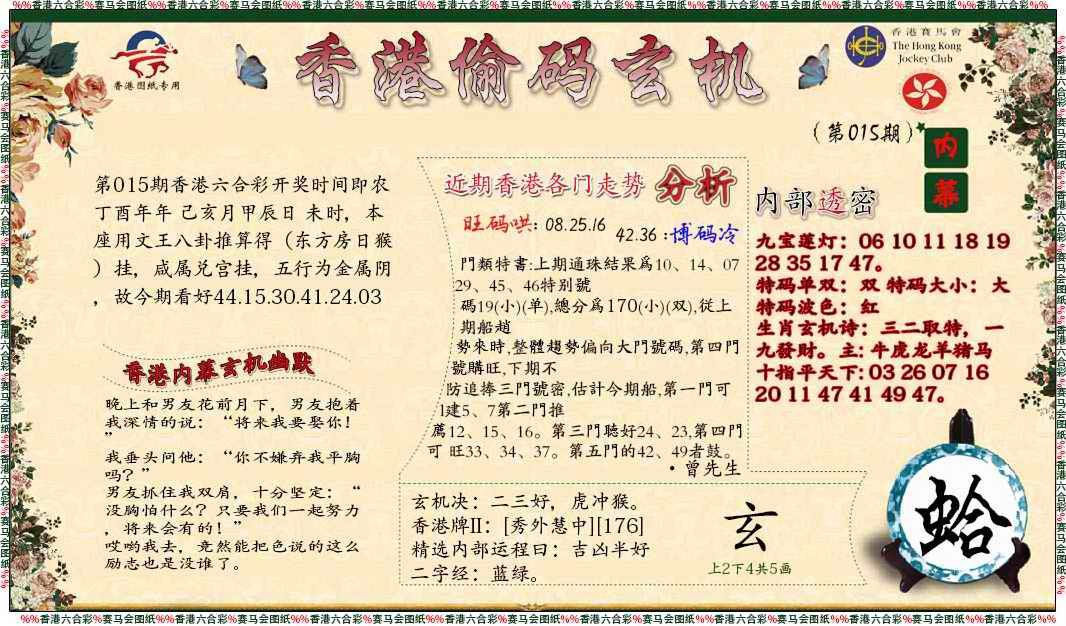 %%香港六合彩%赛马会图纸%%香港六合彩%赛马会图纸%%香港六合彩%赛马会图纸%%香港六合彩%赛马会图纸%%香港六合彩%赛马会图纸%%香港六合彩%赛马会图纸%%香港六合彩%%
香港图纸专用
香港偷码玄机
香港賽馬會
The Hong Kong
Jockey Club
(第015期)
内幕
第015期香港六合彩开奖时间即农
丁酉年年 己亥月甲辰日 未时，本
座用文王八卦推算得（东方房日猴
）挂，咸属兑宫挂，五行为金属阴
，故今期看好44.15.30.41.24.03
香港内幕玄机幽默
晚上和男友花前月下，男友抱着
我深情的说：“将来我要娶你！
”
我垂头问他：“你不嫌弃我平胸
吗？”
男友抓住我双肩，十分坚定：“
没胸怕什么？只要我们一起努力
，将来会有的！”
哎哟我去，竟然能把色说的这么
励志也是没谁了。
近期香港各门走势 分析
旺码哄: 08.25.16
42.36 :博码冷
門類特書:上期通珠結果爲10、14、07
29、45、46特别號
碼19(小)(单),總分爲170(小)(双),從上
期船趙
勢來時,整體趨勢偏向大門號碼,第四門
號購旺,下期不
防追捧三門號密,估計今期船,第一門可
1建5、7第二門推
薦12、15、16。第三門聽好24、23,第四門
可 旺33、34、37。第五門的42、49者鼓。
·曾先生
玄机决：二三好，虎冲猴。
香港牌II：[秀外慧中][176]
精选内部运程曰：吉凶半好
二字经：蓝绿。
玄
上2下4共5画
内部透密
九宝莲灯：06 10 11 18 19
28 35 17 47。
特码单双：双 特码大小：大
特码波色：红
生肖玄机诗：三二取特，一
九發财。主: 牛虎龙羊猪马
十指平天下: 03 26 07 16
20 11 47 41 49 47。
蛤
%%香港六合彩%赛马会图纸%%香港六合彩%赛马会图纸%%香港六合彩%赛马会图纸%%香港六合彩%赛马会图纸%%香港六合彩%赛马会图纸%%香港六合彩%赛马会图纸%%香港六合彩%%